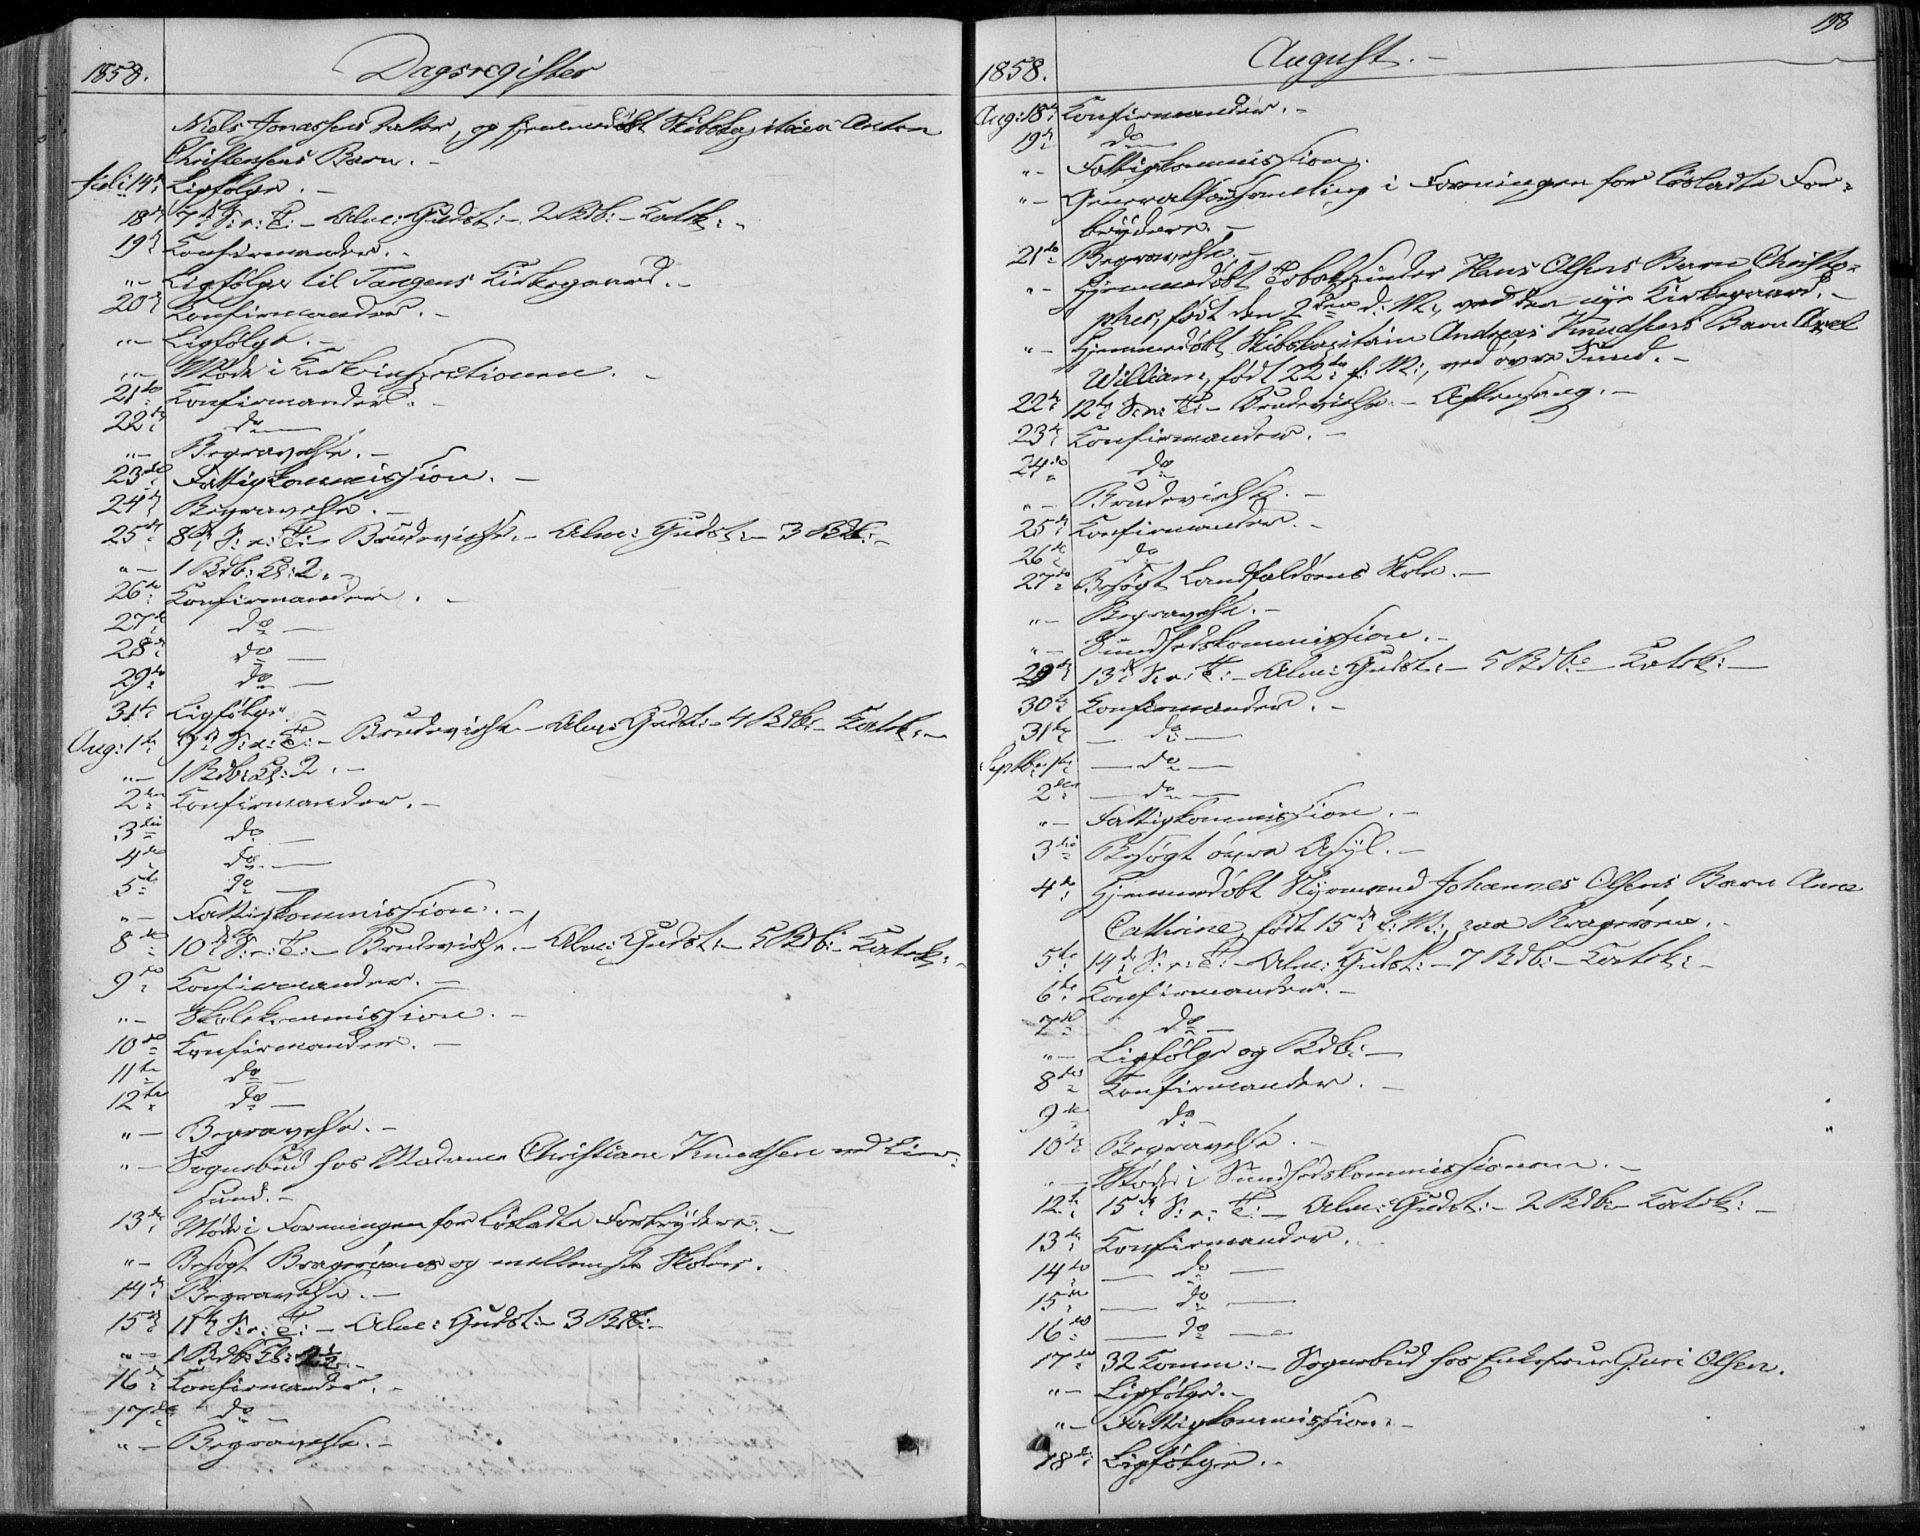 1858.
Dagsregister
Niels Jonassens Datter, og hjemmedöbt Skibskapitain Anton
Christensens Barn. -
Juli 14de Ligfölge. -
18de 7de S: e: T: - Alm: Gudst: - 2 Bdb: - Katek: -
19de Konfirmander. -
"- Ligfölge til Tangens Kirkegaard. -
20de Konfirmander. -
"- Ligfölge. -
"- Möde i Kirkeinspectionen. -
21de Konfirmander. -
22de do
"- Begravelse. -
23de Fattigkommission. -
24de Begravelse. -
25de 8de S: e: T: - Brudevielse. - Alm: Gudst: - 3 Bdb: -
"- 1 Bdb: Kl: 2. -
26de Konfirmander. -
27de do -
28de do -
29de do -
31te Ligfölge. -
Aug: 1ste 9de S: e: T: - Brudevielse - Alm: Gudst: - 4 Bdb: - Katek: -
"- 1 Bdb: Kl: 2. -
2den Konfirmander. -
3die do -
4de do -
5te do -
"- Fattigkommission. -
8de 10de S: e: T: - Brudevielse. - Alm: Gudst: - 5 Bdb: - Katek: -
9de Konfirmander. -
"- Skolekommission. -
10de Konfirmander. -
11te do -
12te do -
"- Begravelse. -
"- Sognebud hos Madame Christiane Knudsen ved
Sund. -
13de Möde i Foreningen for lösladte Forbrydere. -
"- Besögt Bragernes og mellemste Skoler.
14de Begravelse. -
15de 11te S: e: T: - Alm: Gudst: - 3 Bdb: -
"- 1 Bdb: Kl: 2½. -
16de Konfirmander. -
17de do -
"- Begravelse. -
198
1858.
August. -
Aug: 18de Konfirmander. -
19de do
"- Fattigkommission.
"- Generalforsamling i Foreningen for lösladte For-
brydere. -
21de Begravelse. -
"- Hjemmedöbt Tobakspinder Hans Olsens Barn Christo-
pher, födt den 2den d: M:, ved den nye Kirkegaard. -
"- Hjemmedöbt Skibskapitain Andreas Knudsens Barn Axel
William, födt 22de f: M:, ved övre Sund. -
22de 12te S: e: T: - Brudevielse. - Aftensang. -
23de Konfirmander. -
24de do
"- Brudevielse. -
25de Konfirmander. -
26de do
27de Besögt Landfaldöens Skole. -
"- Begravelse. -
"- Sundhedskommission. -
29de 13de S: e: T: - Alm: Gudst: - 5 Bdb: - Katek: -
30te Konfirmander. -
31te - do -
Septbr 1ste - do -
2den - do -
"- Fattigkommission. -
3die Besögt övre Asyl. -
4de Hjemmedöbt Styrmand Johannes Olsens Barn Anne
Cathrine, födt 15de f: M:, paa Brageröen. -
5te 14de S: e: T: - Alm: Gudst: - 7 Bdb: - Katek: -
6te Konfirmander. -
7de do -
"- Ligfölge og Bdb: -
8de Konfirmander. -
9de do -
10de Begravelse. -
"- Möde i Sundhedskommissionen. -
12te 15de S: e: T: - Alm: Gudst: - 2 Bdb: - Katek: -
13de Konfirmander.
14de - do -
15de - do -
16de - do -
17de 32 Komm: - Sognebud hos Enkefrue Guri Olsen.
"- Ligfölge. -
"- Fattigkommission. -
18de Ligfölge. -